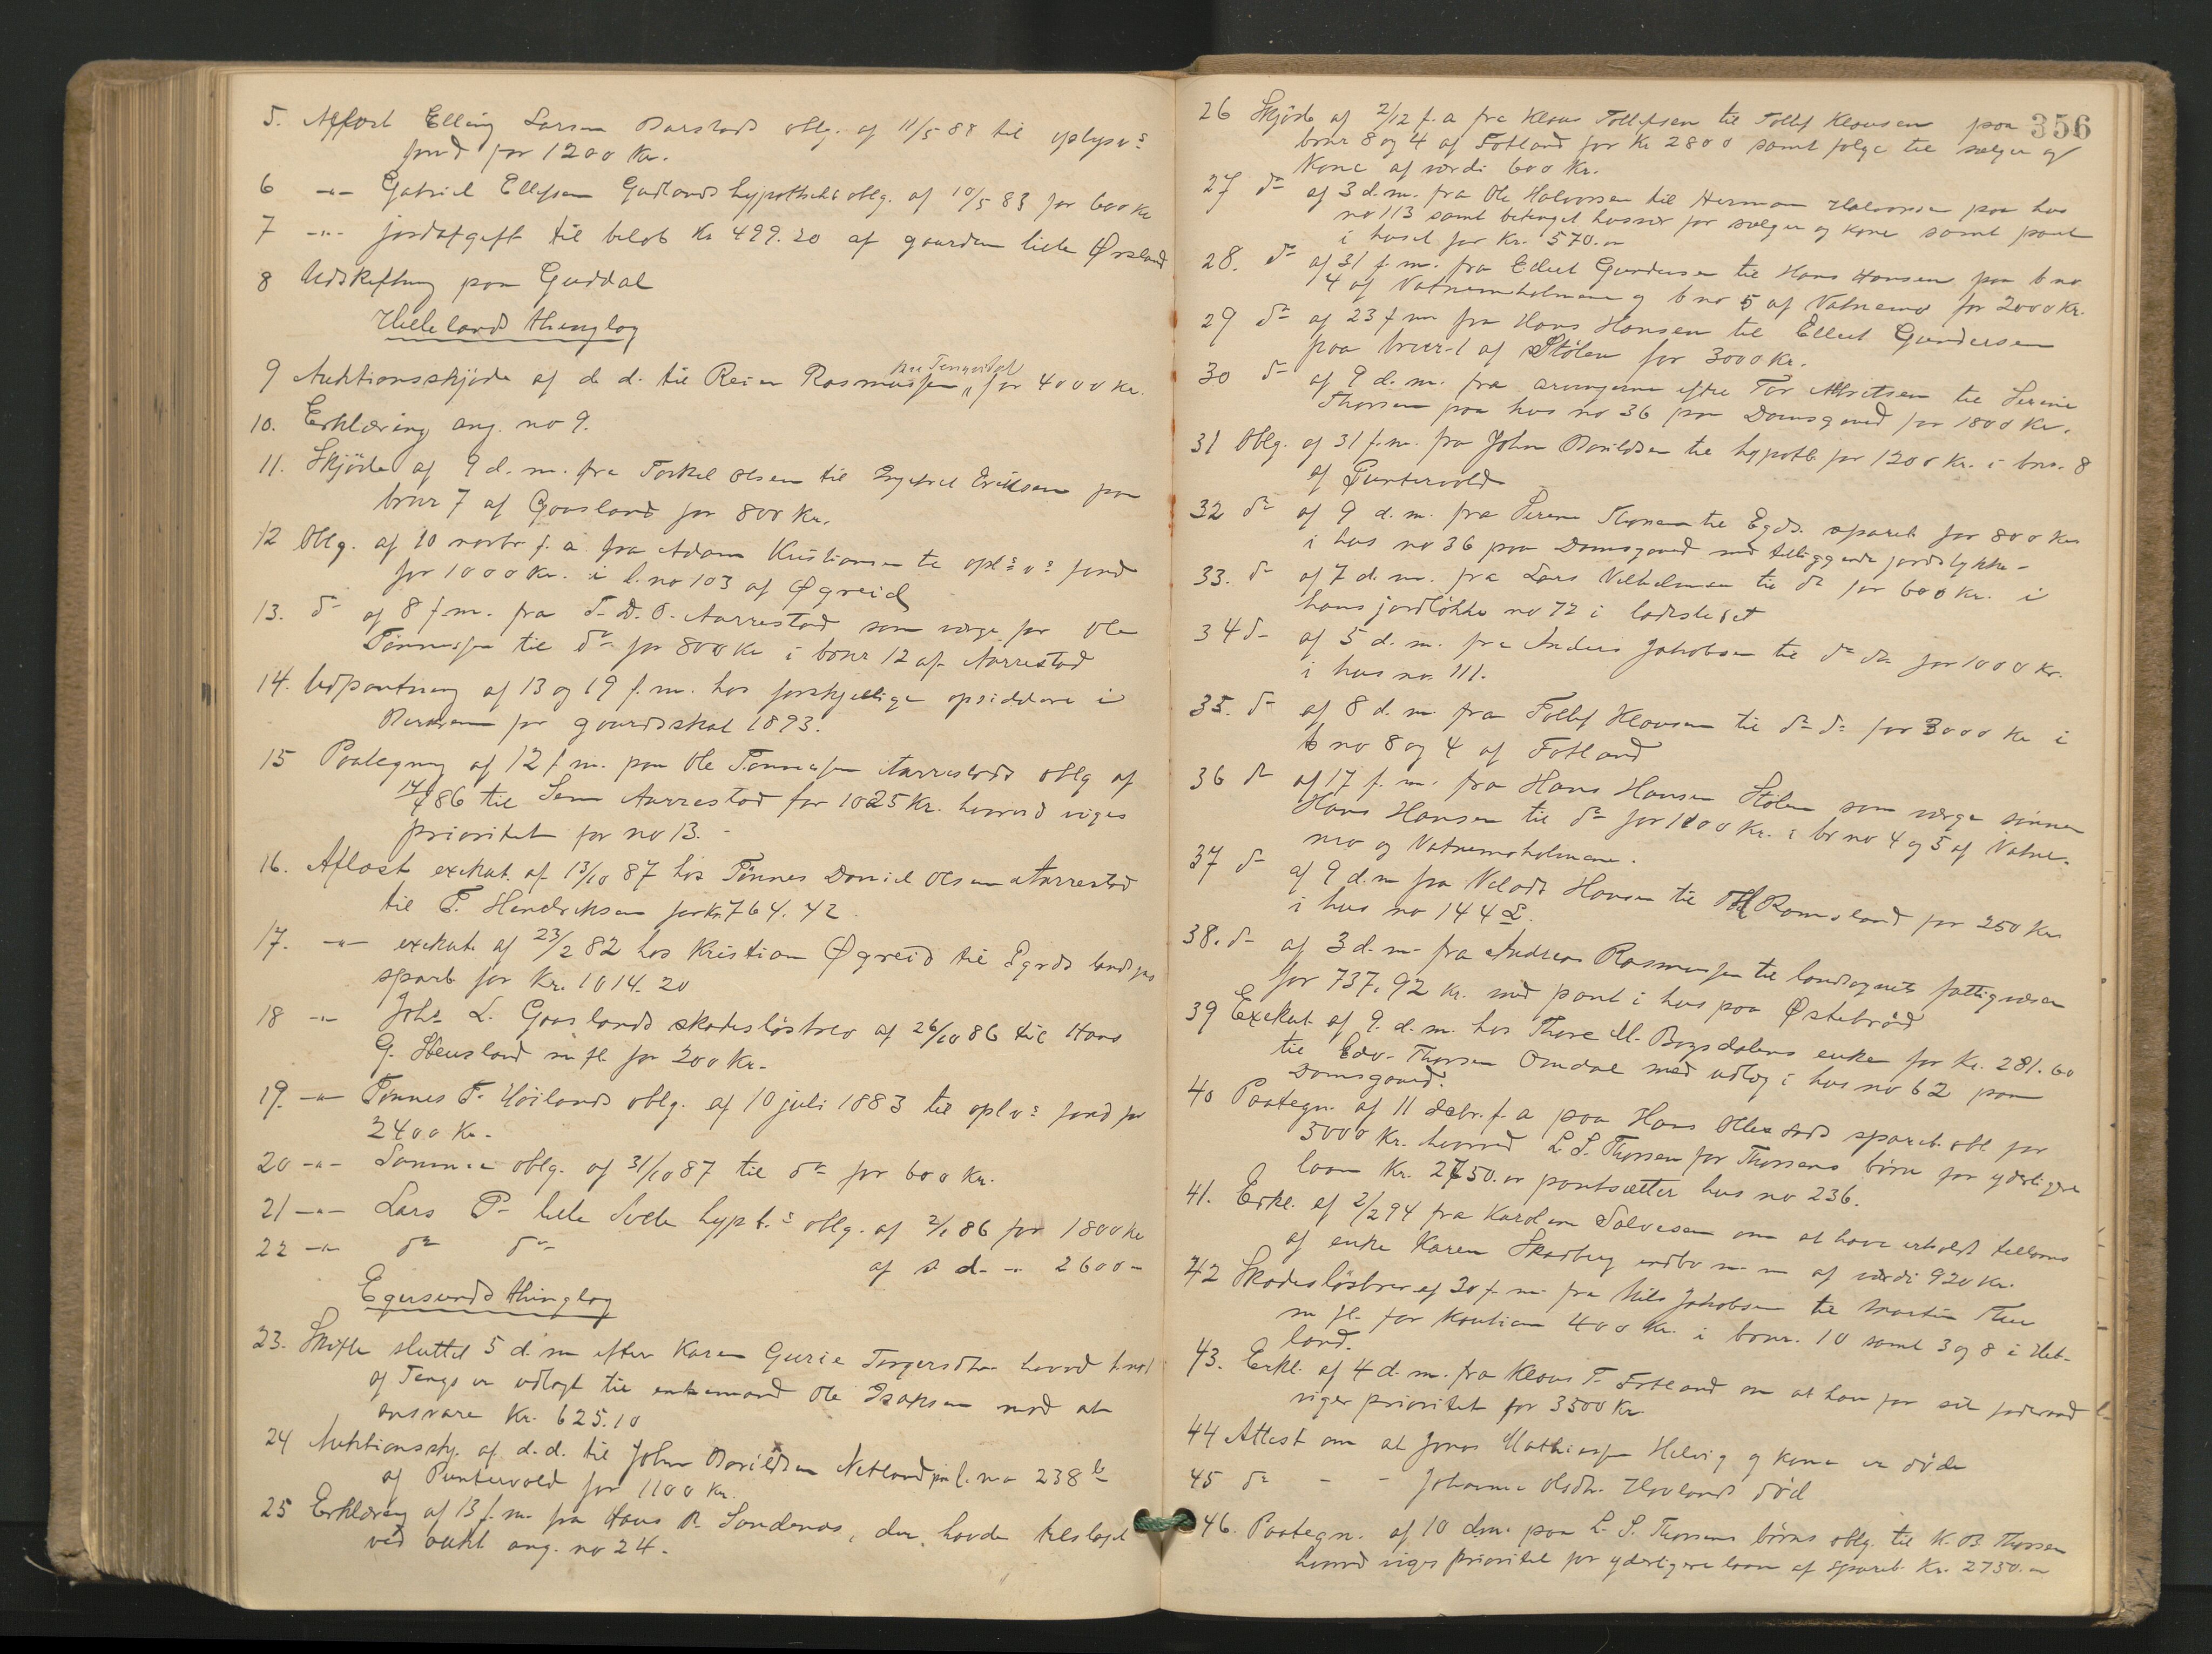 5. Aflöst Elling Larsen Barstads oblg. af 11/5 88 til oplysn:s
fond for 1200 Kr.
6 -"- Gabriel Ellefsen Gudlands hypotheks oblg. af 10/5 83 for 600 Kr
7 -"- jordafgift til belöb Kr 499.20 af gaarden lille Ørsland
8 Udskiftning paa Guddal
Hellelands thinglag
9 Auktionsskjöde af d. d. til Reier Rasmussen for 4000 Kr.
10. Erklæring ang. no 9.
11. Skjöde af 9 d. m. fra Torkel Olsen til Eriksen paa
brnr 7 af Gaasland for 800 Kr.
12 Oblg. af 10 novbr f. a. fra Adam Kristiansen til opl:s v:s fond
for 1000 Kr. i l. no 103 af Øgreid
13. do af 8 f. m. fra T. D. O. Aarrestad som værge for Ole
Tönnessen til do for 800 Kr i brnr 12 af Aarrestad
14. Udpantning af 13 og 19 f. m. hos forskjellige opsiddere i
for gaardsskat 1893.
15 Paategning af 12 f. m. paa Ole Tönnessen Aarrestads oblg af
14/4 86 til Sem Aarrestad for 1025 Kr. hvorved viges
prioritet for no 13. -
16. Aflöst exekut. af 13/10 87 hos Tönnes Daniel Olsen Aarrestad
til T. Hendriksen for Kr. 764.42
17. -"- exekut. af 23/2 82 hos Kristian Øgreid til Egrds landsgns
sparb for Kr. 1014.20
18 -"- Johs L. Gaaslands skadeslösbrev af 26/10 86 til Hans
G. Steusland m fl. for 200 Kr.
19. -"- Tönnes T. Höilands oblg. af 10 juli 1883 til opl v:s fond for
2400 Kr.
20 -"- Samme oblg. af 31/10 87 til do for 600 Kr.
21 -"- Lars P. lille Svela hypt.s oblg. af 2/1 86 for 1800 Kr
22 -"- do do af s d. -"- 2600 -
Egersunds thinglag
23. Skifte sluttet 5 d. m efter Karen Gurie Torgersdtr hvorved
af Tengs er udlagt til enkemand Ole Isaksen mod at
ansvare Kr. 625.10
24 Auktionsskj. af d. d. til John Bovildsen Netland paa l. no 238 b
af Puntervold for 1100 Kr.
25 Erklæring af 13 f. m. fra Hans R. Sandenas, der havde tilslaget
ved aukt ang. no 24.
356
26 Skjöde af 2/12 f. a fra Klaus Tollefsen til Tollef Klausen paa
brnr 8 og 4 af Fotland for Kr 2800 samt folge til sælger og
kone af værdi 600 Kr.
27 do af 3 d. m. fra Ole Halvorsen til Herman Halvorsen paa hus
no 113 samt betinget husvær for sælger og kone samt pant
i huset for Kr. 570.00
28. do af 31 f. m. fra Ellert Gundersen til Hans Hansen paa b no
4 af Vatnemoholmene og b no 5 af Vatnemo for 2000 Kr.
29 do af 23 f m fra Hans Hansen til Ellert Gundersen
paa brnr 1 af Stölen for 3000 Kr.
30 do af 9 d. m. fra arvingerne efter Tor Alvitsen til Serine
Thorsen paa hus no 36 paa Damsgaard for 1800 Kr.
31 Oblg. af 31 f. m. fra John Bovildsen til hypotb for 1200 Kr. i brn. 8
af Puntervold
32 do af 9 d. m. fra Serine Thorsen til Egds. spareb for 800 Kr
i hus no 36 paa Damsgaard med tilliggende jordstykke -
33. do af 7 d. m. fra Lars Vilhelmsen til do for 600 Kr. i
hans jordlökke no 72 i ladestedet
34 do af 5 d. m. fra Anders Jakobsen til do do for 1000 Kr.
i hus no 111.
35. do af 8 d. m. fra Tollef Klausen til do do for 3000 Kr i
b no 8 og 4 af Fotland
36 do af 17 f. m. fra Hans Hansen Stölen som værge sönnen
Hans Hansen til do for 1100 Kr. i br no 4 og 5 af Vatne-
mo og Vatnemoholmene.
37 do af 9 d. m fra Velads Hansen til Ramsland for 250 Kr
i hus no 144
38. do af 3 d. m. fra Andreas Rasmussen til landsognets fattigvæsen
for 737.92 Kr. med pant i hus paa Østebröd
39 Exekut. af 9. d. m. hos Thore M. Bogsdalens enke for Kr. 281.60
til Edv. Thorsen Omdal med udlæg i hus no 62 paa
Damsgaard.
40 Paategn. af 11 decbr. f. a paa Hans spareb. obl. for
3000 Kr. hvorved L. S. Thorsen for Thorsens börn for yderligere
laan Kr. 2750.00 pantsætter hus no 236.
41. Erkl. af 2/2 94 fra Karoline Salvesen om at have erholdt tillaans
af enke Karen Skadberg indbo m. m af værdi 920 Kr.
42 Skadeslösbrev af 30 f. m. fra Nils Jakobsen til Martin Thu
m fl. for kaution 400 Kr. i brnr. 10 samt 3 og 8 i Het-
land.
43. Erkl. af 4 d. m. fra Klaus T. Fotland om at han for sit föderaad
viger prioritet for 3500 Kr
44 Attest om at Jonas Mathiassen Helvig og kone er döde
45 do - - Johanne Olsdtr. Hovlands död
46. Paategn. af 10 d. m. paa L. S. Thorsens börns oblg. til K. B. Thorsen
hvorved viges prioritet for yderligere laan af spareb. Kr. 2750.00